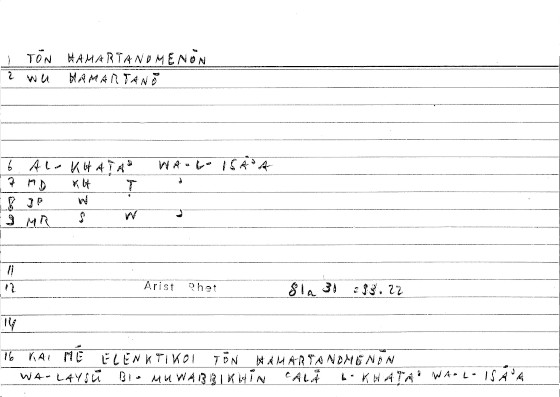 1 TŌN HAMARTANOMENŌN
2 WU HAMARTANŌ
6 AL- KHAṬAʾ WA-L- ISĀʾA
7 MD KH Ṭ ʾ
8 JP W
9 MR S W ʾ
11
12 Arist Rhet 81a 31 = 93.22
14
16 KAI MĒ ELENKTIKOI TŌN HAMARTANOMENŌN
WA-LAYSŪ BI- MUWABBIKHĪN ʿALĀ L- KHAṬAʾ WA-L- ISĀʾA